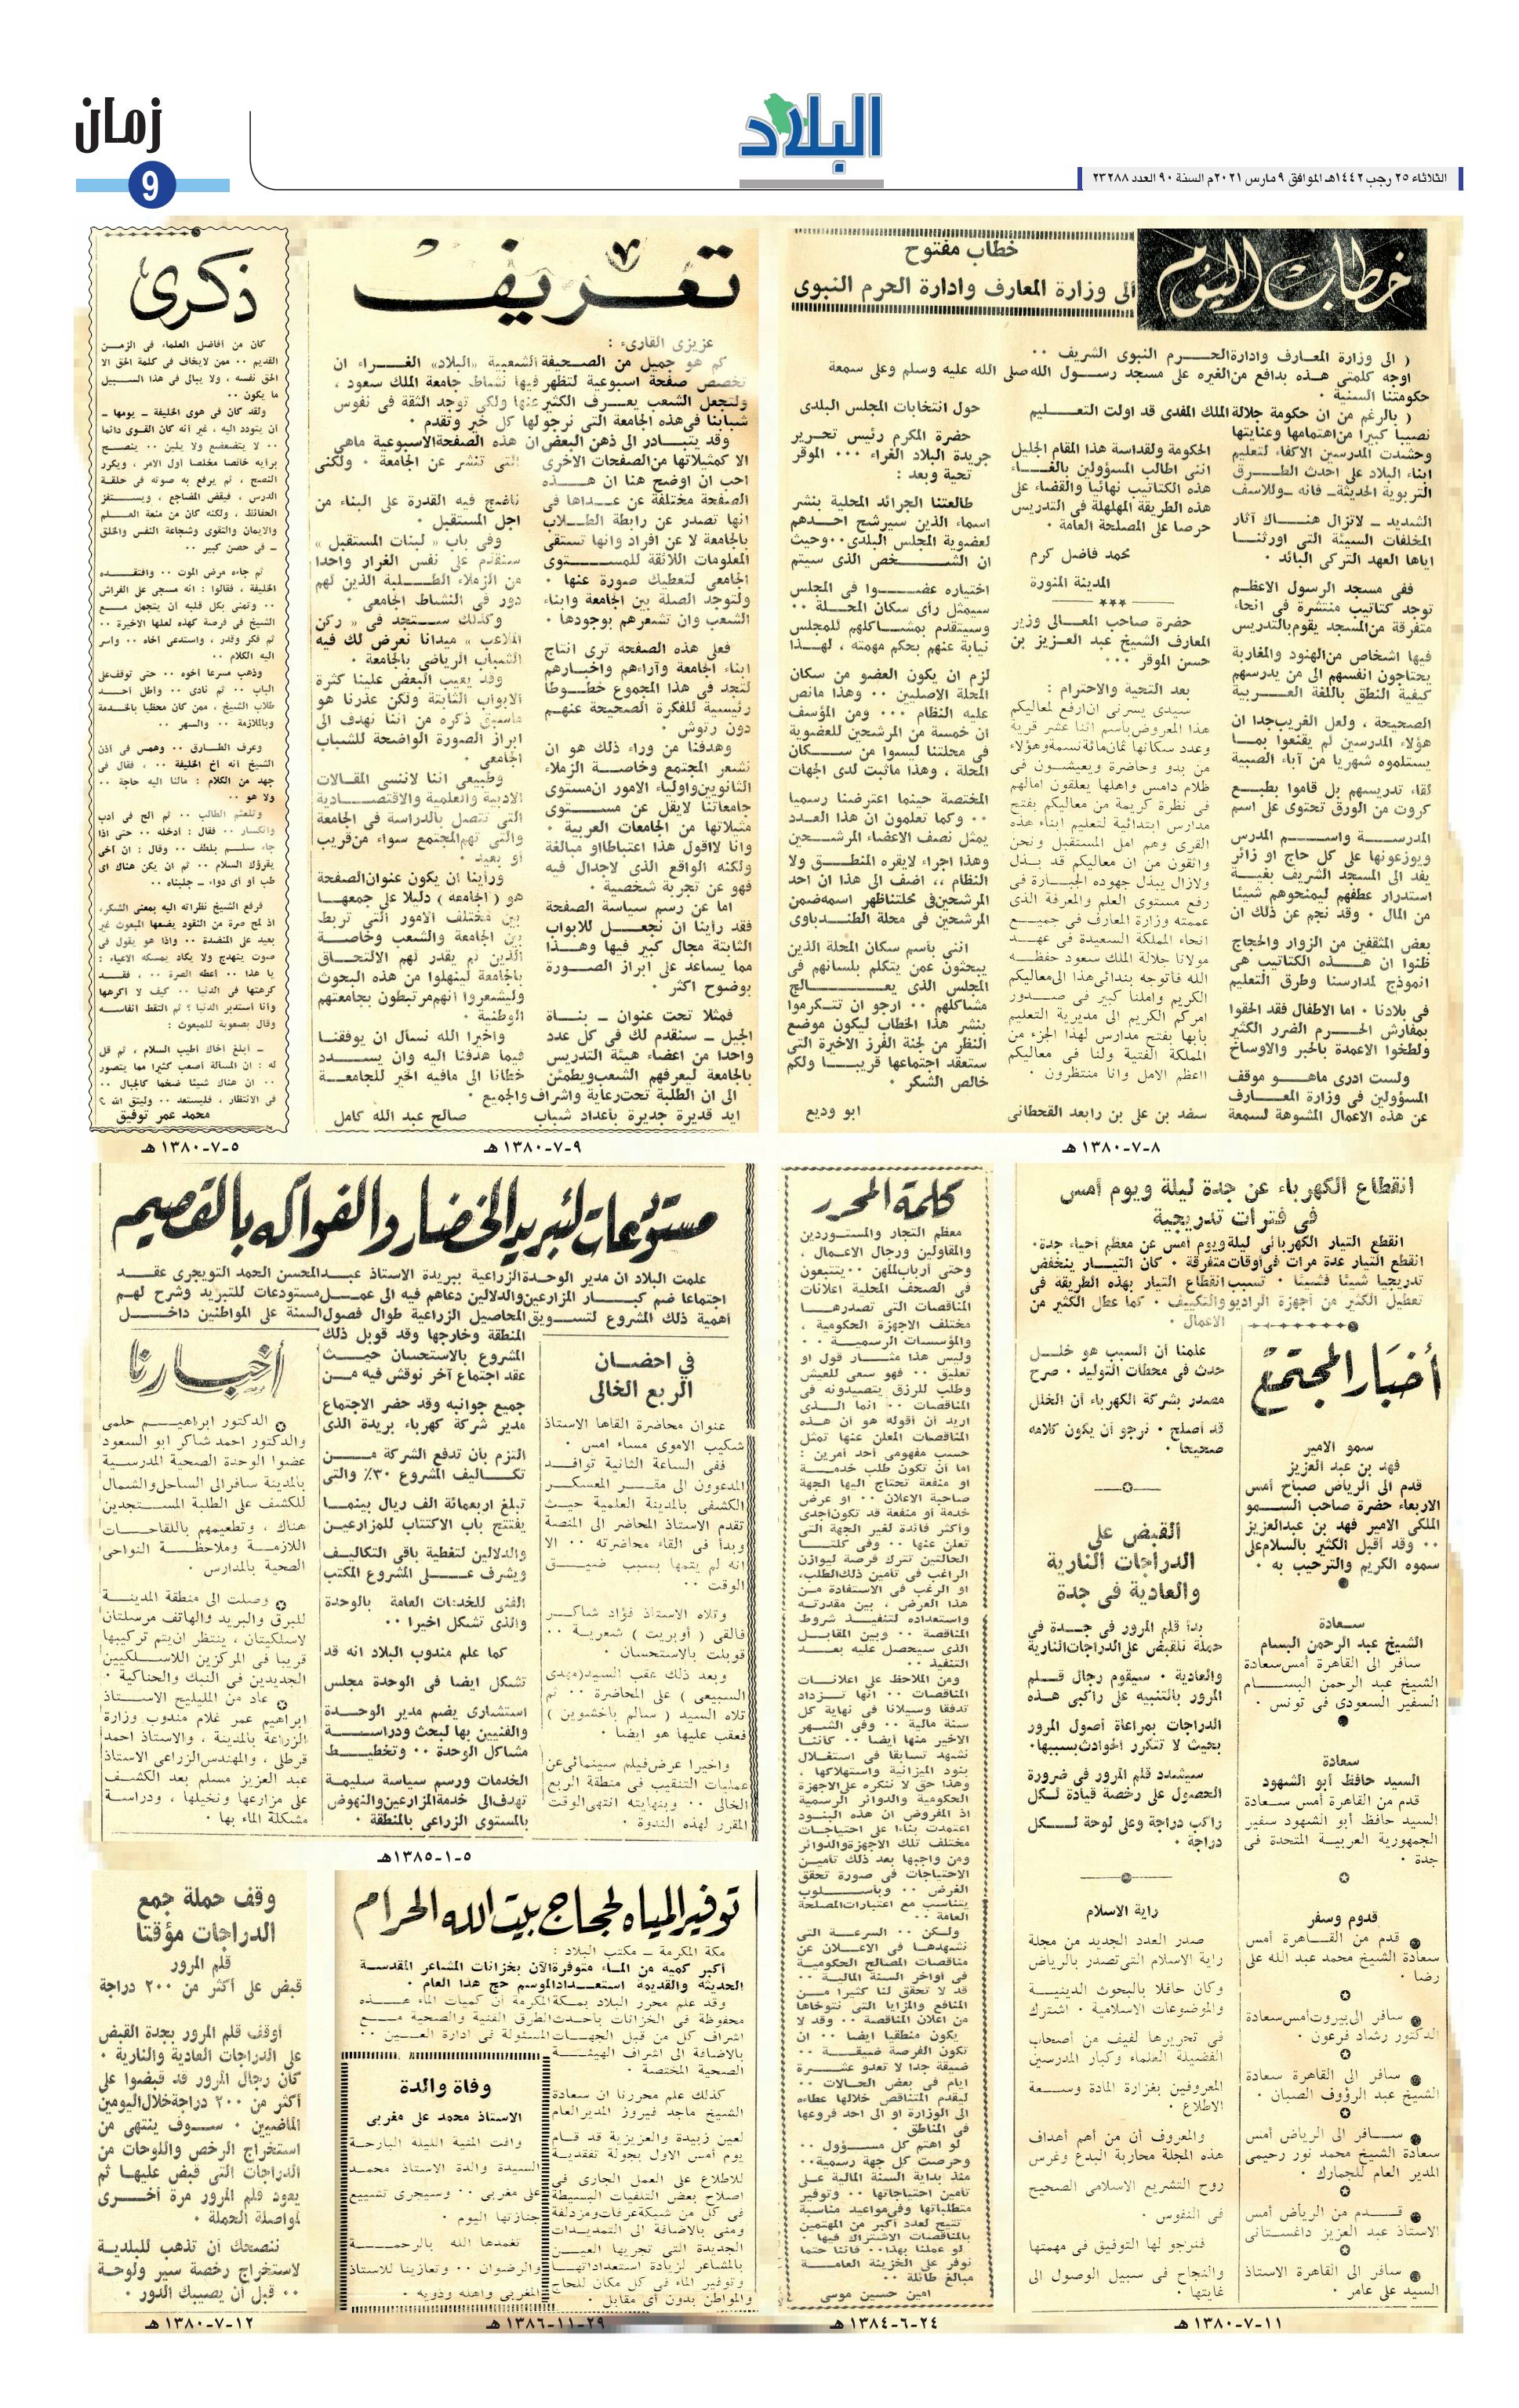 البلاد
الثلاثاء ٢٥ رجب ١٤٤٢هـ الموافق ٩ مارس ٢٠٢١م السنة ٩٠ العدد ٢٣٢٨٨
زمان
9
خطاب اليوم
خطاب مفتوح
الى وزارة المعارف وادارة الحرم النبوى
( الى وزارة المعارف وادارة الحرم النبوى الشريف ٠٠
اوجه كلمتى هذه بدافع من الغيره على مسجد رسول الله صلى الله عليه وسلم وعلى سمعة
حكومتنا السنية ٠
( بالرغم من ان حكومة جلالة الملك المفدى قد اولت التعليم
نصيبا كبيرا من اهتمامها وعنايتها
وحشدت المدرسين الاكفاء لتعليم
ابناء البلاد على احدث الطرق
التربوية الحديثة ـ فانه ـ وللاسف
الشديد ـ لاتزال هناك آثار
المخلفات السيئة التى اورثنا
اياها العهد التركى البائد ٠
ففى مسجد الرسول الاعظم
توجد كتاتيب منتشرة فى انحاء
متفرقة من المسجد يقوم بالتدريس
فيها اشخاص من الهنود والمغاربة
يحتاجون انفسهم الى من يدرسهم
كيفية النطق باللغة العربية
الصحيحة ، ولعل الغريب جدا ان
هؤلاء المدرسين لم يقنعوا بما
يستلموه شهريا من آباء الصبية
لقاء تدريسهم بل قاموا بطبع
كروت من الورق تحتوى على اسم
المدرسة واسم المدرس
ويوزعونها على كل حاج او زائر
يفد الى المسجد الشريف بغية
استدرار عطفهم ليمنحوهم شيئا
من المال ٠ وقد نجم عن ذلك ان
بعض المثقفين من الزوار والحجاج
ظنوا ان هذه الكتاتيب هى
انموذج لمدارسنا وطرق التعليم
فى بلادنا ٠ اما الاطفال فقد الحقوا
بمفارش الحرم الضرر الكثير
ولطخوا الاعمدة بالحبر والاوساخ
ولست ادرى ماهو موقف
المسؤولين فى وزارة المعارف
عن هذه الاعمال المشوهة لسمعة
الحكومة ولقداسة هذا المقام الجليل
اننى اطالب المسؤولين بالغاء
هذه الكتاتيب نهائيا والقضاء على
هذه الطريقة المهلهلة فى التدريس
حرصا على المصلحة العامة ٠
محمد فاضل كرم
المدينة المنورة
***
حضرة صاحب المعالى وزير
المعارف الشيخ عبد العزيز بن
حسن الموقر ٠٠٠
بعد التحية والاحترام :
سيدى يسرنى ان ارفع لمعاليكم
هذا المعروض باسم اثنا عشر قرية
وعدد سكانها ثمان مائة نسمة وهؤلاء
من بدو وحاضرة ويعيشون فى
ظلام دامس واهلها يعلقون امالهم
فى نظرة كريمة من معاليكم بفتح
مدارس ابتدائية لتعليم ابناء هذه
القرى وهم امل المستقبل ونحن
واثقون من ان معاليكم قد بذل
ولازال يبذل جهوده الجبارة فى
رفع مستوى العلم والمعرفة الذى
عممته وزارة المعارف فى جميع
انحاء المملكة السعيدة فى عهد
مولانا جلالة الملك سعود حفظه
الله فاتوجه بندائى هذا الى معاليكم
الكريم واهلنا كبير فى صدور
امركم الكريم الى مديرية التعليم
بابها بفتح مدارس لهذا الجزء من
المملكة الفتية ولنا فى معاليكم
ااعظم الامل وانا منتظرون ٠
سعد بن على بن رابعد القحطانى
حول انتخابات المجلس البلدى
حضرة المكرم رئيس تحرير
جريدة البلاد الغراء ٠٠٠ الموقر
تحية وبعد :
طالعتنا الجرائد المحلية بنشر
اسماء الذين سيرشح احدهم
لعضوية المجلس البلدى ٠٠ وحيث
ان الشخص الذى سيتم
اختياره عضوا فى المجلس
سيمثل رأى سكان المحلة ٠٠
وسيتقدم بمشاكلهم للمجلس
نيابة عنهم بحكم مهمته ، لهذا
لزم ان يكون العضو من سكان
المحلة الاصليين ٠٠ وهذا مانص
عليه النظام ٠٠٠ ومن المؤسف
ان خمسة من المرشحين للعضوية
فى محلتنا ليسوا من سكان
المحلة ، وهذا ماثبت لدى الجهات
المختصة حينما اعترضنا رسميا
٠٠ وكما تعلمون ان هذا العدد
يمثل نصف الاعضاء المرشحين
وهذا اجراء لايقره المنطق ولا
النظام ،، اضف الى هذا ان احد
المرشحين فى محلتنا ظهر اسمه ضمن
المرشحين فى محلة الهنداوى
اننى باسم سكان المحلة الذين
يبحثون عمن يتكلم بلسانهم فى
المجلس الذى يعالج
مشاكلهم ٠٠ ارجو ان تتكرموا
بنشر هذا الخطاب ليكون موضع
النظر من لجنة الفرز الاخيرة التى
ستعقد اجتماعها قريبا ولكم
خالص الشكر ٠
ابو وديع
٨-٧-١٣٨٠هـ
تعريف
عزيزى القارىء :
كم هو جميل من الصحيفة الشعبية «البلاد» الغراء ان
تخصص صفحة اسبوعية لتظهر فيها نشاط جامعة الملك سعود ،
ولتجعل الشعب يعرف الكثير عنها ولكى توجد الثقة فى نفوس
شبابنا فى هذه الجامعة التى نرجو لها كل خير وتقدم ٠
وقد يتبادر الى ذهن البعض ان هذه الصفحة الاسبوعية ماهى
الا كمثيلاتها من الصفحات الاخرى التى تنشر عن الجامعة ٠ ولكنى
احب ان اوضح هنا ان هذه
الصفحة مختلفة عن عداها فى
انها تصدر عن رابطة الطلاب
بالجامعة لا عن افراد وانها تستقى
المعلومات اللائقة للمستوى
الجامعى لتعطيك صورة عنها ٠
ولتوجد الصلة بين الجامعة وابناء
الشعب وان تشعرهم بوجودها ٠
فعلى هذه الصفحة ترى انتاج
ابناء الجامعة وآراءهم واخبارهم
لتجد فى هذا المجموع خطوطا
رئيسية للفكرة الصحيحة عنهم
دون رتوش ٠
وهدفنا من وراء ذلك هو ان
نشعر المجتمع وخاصة الزملاء
الثانويين واولياء الامور ان مستوى
جامعاتنا لايقل عن مستوى
مثيلاتها من الجامعات العربية ٠
وانا لااقول هذا اعتباطا او مبالغة
ولكنه الواقع الذى لاجدال فيه
فهو عن تجربة شخصية ٠
اما عن رسم سياسة الصفحة
فقد رأينا ان نجعل للابواب
الثابتة مجال كبير فيها وهذا
مما يساعد على ابراز الصورة
بوضوح اكثر ٠
فمثلا تحت عنوان ـ بناة
الجيل ـ سنقدم لك فى كل عدد
واحدا من اعضاء هيئة التدريس
بالجامعة ليعرفهم الشعب ويطمئن
الى ان الطلبة تحت رعاية واشراف
ايد قديرة جديرة بأعداد شباب
ناضج فيه القدرة على البناء من
اجل المستقبل ٠
وفى باب « لبنات المستقبل »
سنقدم على نفس الغرار واحدا
من الزملاء الطلبة الذين لهم
دور فى النشاط الجامعى ٠
وكذلك ستجد فى « ركن
الملاعب » ميدانا نعرض لك فيه
الشباب الرياضى بالجامعة ٠
وقد يعيب البعض علينا كثرة
الابواب الثابتة ولكن عذرنا هو
ماسبق ذكره من اننا نهدف الى
ابراز الصورة الواضحة للشباب
الجامعى ٠
وطبيعى اننا لاننسى المقالات
الادبية والعلمية والاقتصادية
التى تتصل بالدراسة فى الجامعة
والتى تهم المجتمع سواء من قريب
أو بعيد ٠
ورأينا ان يكون عنوان الصفحة
هو ( الجامعه ) دليلا على جمعها
بين مختلف الامور التى تربط
بين الجامعة والشعب وخاصة
الذين لم يقدر لهم الالتحاق
بالجامعة لينهلوا من هذه البحوث
وليشعروا انهم مرتبطون بجامعتهم
الوطنية ٠
واخيرا الله نسأل ان يوفقنا
فيما هدفنا اليه وان يسدد
خطانا الى مافيه الخير للجامعة
والجميع ٠
صالح عبد الله كامل
٩-٧-١٣٨٠هـ
ذكرى
كان من افاضل العلماء فى الزمن
القديم ٠٠ ممن لايخاف فى كلمة الحق الا
الحق نفسه ، ولا يبالى فى هذا السبيل
ما يكون ٠٠
ولقد كان فى هوى الخليفة ـ يومها ـ
أن يتودد اليه ، غير أنه كان القوى دائما
٠٠ لا يتضعضع ولا يلين ٠٠ ينصح
برأيه خالصا مخلصا اول الامر ، ويكرر
النصح ، ثم يرفع به صوته فى حلقة
الدرس ، فيقض المضاجع ، ويستفز
الحفائظ ، ولكنه كان من منعة العلم
والايمان والتقوى وشجاعة النفس والخلق
ـ فى حصن كبير ٠٠
ثم جاءه مرض الموت ٠٠ وافتقده
الخليفة ، فقالوا : انه مسجى على الفراش
٠٠ وتمنى بكل قلبه ان يتجمل مع
الشيخ فى فرصة كهذه لعلها الاخيرة ٠٠
ثم فكر وقدر ، واستدعى اخاه ٠٠ واسر
اليه الكلام ٠٠
وذهب مسرعا اخوه ٠٠ حتى توقف على
الباب ٠٠ ثم نادى ٠٠ واطل احد
طلاب الشيخ ، ممن كان محظيا بالخدمة
وبالملازمة ٠٠ والسهر ٠٠
وعرف الطارق ٠٠ وهمس فى اذن
الشيخ انه أخ الخليفة ٠٠ ، فقال فى
جهد من الكلام : مالنا اليه حاجة ٠٠
ولا هو ٠٠
وتلعثم الطالب ٠٠ ثم الح فى ادب
وانكسار ٠٠ فقال : ادخله ٠٠ حتى اذا
جاء سلم بلطف ٠٠ وقال : ان أخى
يقرؤك السلام ٠٠ ثم ان يكن هناك اى
طب او أى دواء ـ جلبناه ٠٠
فرفع الشيخ نظراته اليه بمعنى الشكر،
اذ لمح صرة من النقود يضعها المبعوث غير
بعيد على المنضدة ٠٠ واذا هو يقول فى
صوت يتهدج ولا يكاد يمسكه الاعياء :
يا هذا ٠٠ اعطه الصرة ٠٠ ، فقد
كرهتها فى الدنيا ٠٠ كيف لا اكرهها
وأنا استدبر الدنيا ؟ ثم التقط انفاسه
وقال بصعوبة للمبعوث :
ـ ابلغ اخاك أطيب السلام ، ثم قل
له : ان المسألة أصعب كثيرا مما يتصور
٠٠ ان هناك شيئا ضخما كالجبال ٠٠
فى الانتظار ، فليستعد ٠٠ وليتق الله ؟
محمد عمر توفيق
٥-٧-١٣٨٠هـ
انقطاع الكهرباء عن جدة ليلة ويوم أمس
في فترات تدريجية
انقطع التيار الكهربائى ليلة ويوم أمس عن معظم أحياء جدة٠
انقطع التيار عدة مرات فى أوقات متفرقة ٠ كان التيار ينخفض
تدريجيا شيئا فشيئا ٠ تسبب انقطاع التيار بهذه الطريقة فى
تعطيل الكثير من أجهزة الراديو والتكييف ٠ كما عطل الكثير من
الاعمال ٠
علمنا أن السبب هو خلل
حدث فى محطات التوليد ٠ صرح
مصدر بشركة الكهرباء أن الخلل
قد أصلح ٠ نرجو أن يكون كلامه
صحيحا ٠
القبض على
الدراجات النارية
والعادية فى جدة
بدأ قلم المرور فى جدة فى
حملة للقبض على الدراجات النارية
والعادية ٠ سيقوم رجال قلم
المرور بالتنبيه على راكبى هذه
الدراجات بمراعاة أصول المرور
بحيث لا تتكرر الحوادث بسببها٠
سيشدد قلم المرور فى ضرورة
الحصول على رخصة قيادة لكل
راكب دراجة وعلى لوحة لكل
دراجة ٠
راية الاسلام
صدر العدد الجديد من مجلة
راية الاسلام التى تصدر بالرياض
وكان حافلا بالبحوث الدينية
والموضوعات الاسلامية ٠ اشترك
فى تحريرها لفيف من أصحاب
الفضيلة العلماء وكبار المدرسين
المعروفين بغزارة المادة وسعة
الاطلاع ٠
والمعروف أن من أهم أهداف
هذه المجلة محاربة البدع وغرس
روح التشريع الاسلامى الصحيح
فى النفوس ٠
فنرجو لها التوفيق فى مهمتها
والنجاح فى سبيل الوصول الى
غايتها ٠
أخبار المجتمع
سمو الامير
فهد بن عبد العزيز
قدم الى الرياض صباح أمس
الاربعاء حضرة صاحب السمو
الملكى الامير فهد بن عبدالعزيز
٠٠ وقد أقبل الكثير بالسلام على
سموه الكريم والترحيب به ٠
سعادة
الشيخ عبد الرحمن البسام
سافر الى القاهرة أمس سعادة
الشيخ عبد الرحمن البسام
السفير السعودى فى تونس ٠
سعادة
السيد حافظ أبو الشهود
قدم من القاهرة أمس سعادة
السيد حافظ أبو الشهود سفير
الجمهورية العربية المتحدة فى
جدة ٠
قدوم وسفر
قدم من القاهرة أمس
سعادة الشيخ محمد عبد الله على
رضا ٠
سافر الى بيروت أمس سعادة
الدكتور رشاد فرعون ٠
سافر الى القاهرة سعادة
الشيخ عبد الرؤوف الصبان ٠
سافر الى الرياض أمس
سعادة الشيخ محمد نور رحيمى
المدير العام للجمارك ٠
قدم من الرياض أمس
الاستاذ عبد العزيز داغستانى
سافر الى القاهرة الاستاذ
السيد على عامر ٠
١١-٧-١٣٨٠هـ
كلمة المحرر
معظم التجار والمستوردين
والمقاولين ورجال الاعمال ،
وحتى أرباب المهن ٠٠ يتتبعون
فى الصحف المحلية اعلانات
المناقصات التى تصدرها
مختلف الاجهزة الحكومية ،
والمؤسسات الرسمية ٠٠
وليس هذا مثار قول او
تعليق ٠٠ فهو سعى للعيش
وطلب للرزق يتصيدونه فى
المناقصات ٠٠ انما الذى
اريد أن أقوله هو أن هذه
المناقصات المعلن عنها تمثل
حسب مفهومى أحد أمرين :
اما أن تكون طلب خدمة
او منفعة تحتاج اليها الجهة
صاحبة الاعلان ٠٠ او عرض
خدمة أو منفعة قد تكون أجدى
وأكثر فائدة لغير الجهة التى
تعلن عنها ٠٠ وفى كلتا
الحالتين تترك فرصة ليوازن
الراغب فى تأمين ذلك الطلب،
او الرغب فى الاستفادة من
هذا العرض ، بين مقدرته
واستعداده لتنفيذ شروط
المناقصة ٠٠ وبين المقابل
الذى سيحصل عليه بعد
التنفيذ ٠٠
ومن الملاحظ على اعلانات
المناقصات ٠٠ انها تزداد
تدفقا وسيلانا فى نهاية كل
سنة مالية ٠٠ وفى الشهر
الاخير منها أيضا ٠٠ كأننا
نشهد تسابقا فى استغلال
بنود الميزانية واستهلاكها ،
وهذا حق لا ننكره على الاجهزة
الحكومية والدوائر الرسمية
اذ المفروض ان هذه البنود
اعتمدت بناءا على احتياجات
مختلف تلك الاجهزة والدوائر
ومن واجبها بعد ذلك تأمين
الاحتياجات فى صورة تحقق
الغرض ٠٠ وبأسلوب
يتناسب مع اعتبارات المصلحة
العامة ٠٠
ولكن ٠٠ السرعة التى
نشهدها فى الاعلان عن
مناقصات المصالح الحكومية
فى أواخر السنة المالية ٠٠
قد لا تحقق لنا كثيرا من
المنافع والمزايا التى نتوخاها
من اعلان المناقصة ٠٠ وقد لا
يكون منطقيا ايضا ٠٠ ان
تكون الفرصة ضيقة ٠٠
ضيقة جدا لا تعدو عشرة
ايام فى بعض الحالات ٠٠
ليقدم المتناقص خلالها عطاءه
الى الوزارة او الى احد فروعها
فى المناطق ٠
لو اهتم كل مسؤول ٠٠
وحرصت كل جهة رسمية٠٠
منذ بداية السنة المالية على
تأمين احتياجاتها ٠٠ وتوفير
متطلباتها وفى مواعيد مناسبة
تتيح لعدد أكبر من المهتمين
بالمناقصات الاشتراك فيها ٠
لو عملنا بهذا٠٠ فاننا حتما
نوفر على الخزينة العامة
مبالغ طائلة ٠٠
امين حسين موسى
٢٤-٦-١٣٨٤هـ
مستودعات لتبريد الخضار والفواكه بالقصيم
علمت البلاد ان مدير الوحدة الزراعية ببريدة الاستاذ عبد المحسن الحمد التويجرى عقد
اجتماعا ضم كبار المزارعين والدلالين دعاهم فيه الى عمل مستودعات للتبريد وشرح لهم
أهمية ذلك المشروع لتسويق المحاصيل الزراعية طوال فصول السنة على المواطنين داخل
المنطقة وخارجها وقد قوبل ذلك
المشروع بالاستحسان حيث
عقد اجتماع آخر نوقش فيه من
جميع جوانبه وقد حضر الاجتماع
مدير شركة كهرباء بريدة الذى
التزم بأن تدفع الشركة من
تكاليف المشروع ٣٠٪ والتى
تبلغ اربعمائة الف ريال بينما
يفتتح باب الاكتتاب للمزارعين
والدلالين لتغطية باقى التكاليف
ويشرف على المشروع المكتب
الفنى للخدمات العامة بالوحدة
والذى تشكل اخيرا ٠٠
كما علم مندوب البلاد انه قد
تشكل ايضا فى الوحدة مجلس
استشارى يضم مدير الوحدة
والفنيين بها لبحث ودراسة
مشاكل الوحدة ٠٠ وتخطيط
الخدمات ورسم سياسة سليمة
تهدف الى خدمة المزارعين والنهوض
بالمستوى الزراعى بالمنطقة ٠
في احضان
الربع الخالى
عنوان محاضرة القاها الاستاذ
شكيب الاموى مساء امس ٠
ففى الساعة الثانية توافد
المدعوون الى مقر المعسكر
الكشفى بالمدينة العلمية حيث
تقدم الاستاذ المحاضر الى المنصة
وبدأ فى القاء محاضرته ٠٠ الا
انه لم يتمها بسبب ضيق
الوقت ٠٠
وتلاه الاستاذ فؤاد شاكر
فالقى ( أوبريت ) شعرية ٠٠
قوبلت بالاستحسان ٠
وبعد ذلك عقب السيد ( مهدى
السبيعى ) على المحاضرة ٠٠ ثم
تلاه السيد ( سالم باخشوين )
فعقب عليها هو ايضا ٠
واخيرا عرض فيلم سينمائى عن
عمليات التنقيب فى منطقة الربع
الخالى ٠٠ وبنهايته انتهى الوقت
المقرر لهذه الندوة ٠
أخبارنا
الدكتور ابراهيم حلمى
والدكتور احمد شاكر ابو السعود
عضوا الوحدة الصحية المدرسية
بالمدينة سافر الى الساحل والشمال
للكشف على الطلبة المستجدين
هناك ، وتطعيمهم باللقاحات
اللازمة وملاحظة النواحى
الصحية بالمدارس ٠
وصلت الى منطقة المدينة
للبرق والبريد والهاتف مرسلتان
لاسلكيتان ، ينتظر ان يتم تركيبها
قريبا فى المركزين اللاسلكيين
الجديدين فى النبك والحناكية ٠
عاد من المليليح الاستاذ
ابراهيم عمر غلام مندوب وزارة
الزراعة بالمدينة ، والاستاذ احمد
قرطلى ، والمهندس الزراعى الاستاذ
عبد العزيز مسلم بعد الكشف
على مزارعها ونخيلها ، ودراسة
مشكلة الماء بها ٠
٥-١-١٣٨٥هـ
توفير المياه لحجاج بيت الله الحرام
مكة المكرمة ـ مكتب البلاد :
أكبر كمية من الماء متوفرة الآن بخزانات المشاعر المقدسة
الحديثة والقديمة استعدادا لموسم حج هذا العام ٠
وقد علم محرر البلاد بمكة المكرمة أن كميات الماء هذه
محفوظة فى الخزانات بأحدث الطرق الفنية والصحية مع
اشراف كل من قبل الجهات المسئولة فى ادارة العين ٠٠
بالاضافة الى اشراف الهيئة
الصحية المختصة ٠
كذلك علم محررنا ان سعادة
الشيخ ماجد فيروز المدير العام
لعين زبيدة والعزيزية قد قام
يوم أمس الاول بجولة تفقدية
للاطلاع على العمل الجارى فى
اصلاح بعض التلفيات البسيطة
فى كل من شبكة عرفات ومزدلفة
ومنى بالاضافة الى التمديدات
الجديدة التى تجريها العين
بالمشاعر لزيادة استعداداتها
وتوفير الماء فى كل مكان للحاج
والمواطن بدون أى مقابل ٠
وفاة والدة
الاستاذ محمد على مغربى
وافت المنية الليلة البارحة
السيدة والدة الاستاذ محمد
على مغربى ٠٠ وسيجرى تشييع
جنازتها اليوم ٠
تغمدها الله بالرحمة
والرضوان ٠٠ وتعازينا للاستاذ
المغربى واهله وذويه ٠
٢٩-١١-١٣٨٦هـ
وقف حملة جمع
الدراجات مؤقتا
قلم المرور
قبض على أكثر من ٢٠٠ دراجة
أوقف قلم المرور بجدة القبض
على الدراجات العادية والنارية ٠
كان رجال المرور قد قبضوا على
أكثر من ٢٠٠ دراجة خلال اليومين
الماضيين ٠ سوف ينتهى من
استخراج الرخص واللوحات من
الدراجات التى قبض عليها ثم
يعود قلم المرور مرة أخرى
لمواصلة الحملة ٠
ننصحك أن تذهب للبلدية
لاستخراج رخصة سير ولوحة
٠٠ قبل أن يصيبك الدور ٠
١٢-٧-١٣٨٠هـ